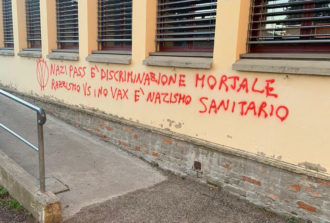 NAZI PASS E' DISCRIMINAZIONE MORTALE
RAZZISMO VS I NO VAX E' NAZISMO SANITARIO